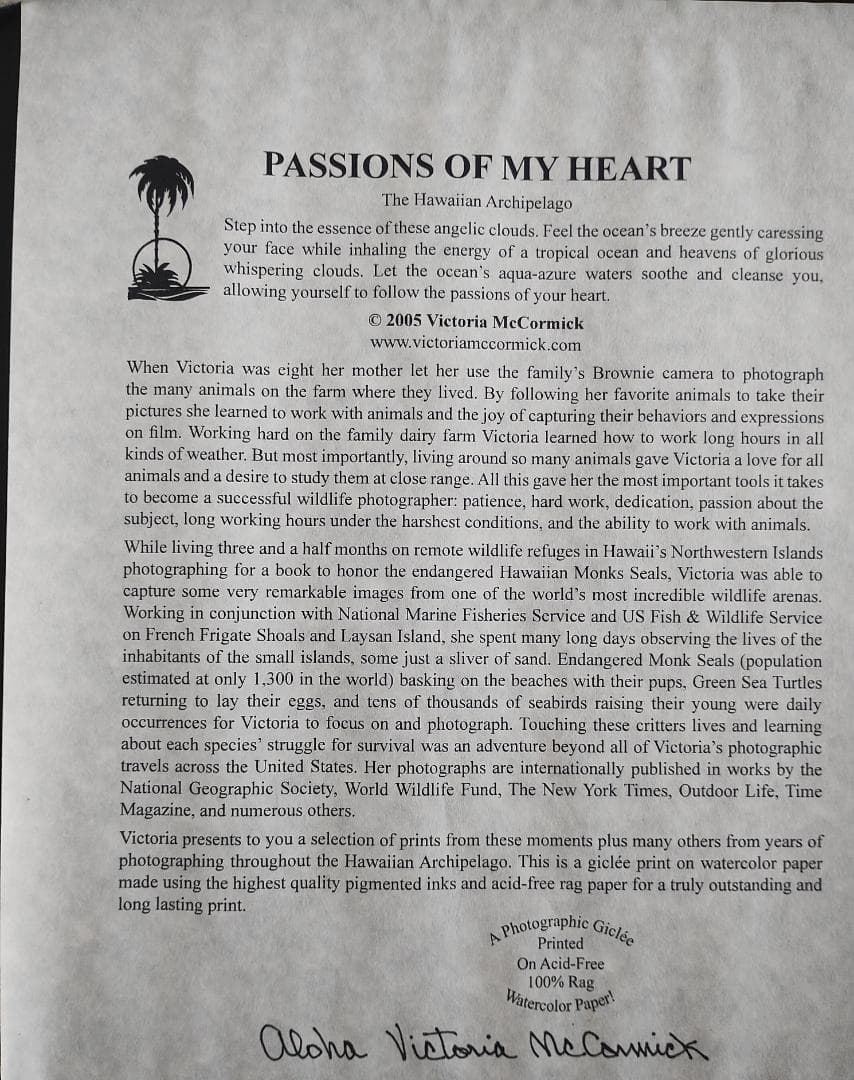 PASSIONS OF MY HEART
The Hawaiian Archipelago
Step into the essence of these angelic clouds. Feel the ocean's breeze gently caressing
your face while inhaling the energy of a tropical ocean and heavens of glorious
whispering clouds. Let the ocean's aqua-azure waters soothe and cleanse you,
allowing yourself to follow the passions of your heart.
© 2005 Victoria McCormick
www.victoriamccormick.com
When Victoria was eight her mother let her use the family's Brownie camera to photograph
the many animals on the farm where they lived. By following her favorite animals to take their
pictures she learned to work with animals and the joy of capturing their behaviors and expressions
on film. Working hard on the family dairy farm Victoria learned how to work long hours in all
kinds of weather. But most importantly, living around so many animals gave Victoria a love for all
animals and a desire to study them at close range. All this gave her the most important tools it takes
to become a successful wildlife photographer: patience, hard work, dedication, passion about the
subject, long working hours under the harshest conditions, and the ability to work with animals.
While living three and a half months on remote wildlife refuges in Hawaii's Northwestern Islands
photographing for a book to honor the endangered Hawaiian Monks Seals, Victoria was able to
capture some very remarkable images from one of the world's most incredible wildlife arenas.
Working in conjunction with National Marine Fisheries Service and US Fish & Wildlife Service
on French Frigate Shoals and Laysan Island, she spent many long days observing the lives of the
inhabitants of the small islands, some just a sliver of sand. Endangered Monk Seals (population
estimated at only 1,300 in the world) basking on the beaches with their pups, Green Sea Turtles
returning to lay their eggs, and tens of thousands of seabirds raising their young were daily
occurrences for Victoria to focus on and photograph. Touching these critters lives and learning
about each species' struggle for survival was an adventure beyond all of Victoria's photographic
travels across the United States. Her photographs are internationally published in works by the
National Geographic Society, World Wildlife Fund, The New York Times, Outdoor Life, Time
Magazine, and numerous others.
Victoria presents to you a selection of prints from these moments plus many others from years of
photographing throughout the Hawaiian Archipelago. This is a giclée print on watercolor paper
made using the highest quality pigmented inks and acid-free rag paper for a truly outstanding and
long lasting print.
A Photographic Giclée
Printed
On Acid-Free
100% Rag
Watercolor Paper!
Aloha Victoria McCormick